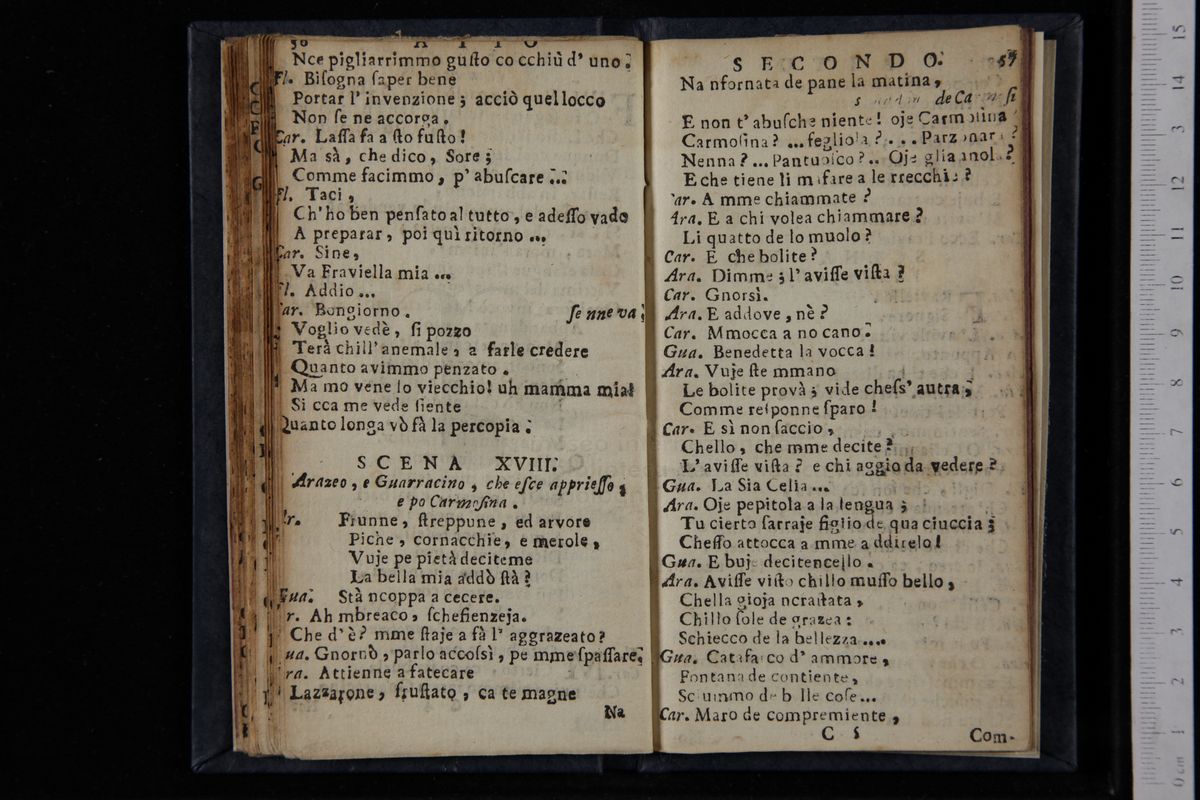 A T T O
Nce pigliarrimmo gusto co cchiù d' uno.
Fl. Bisogna saper bene
Portar l' invenzione; acciò quel locco
Non se ne accorga.
Car. Lassa fa a sto fusto!
Ma sà, che dico, Sore;
Comme facimmo, p' abuscare ...
Fl. Taci,
Ch' ho ben pensato al tutto, e adesso vado
A preparar, poi quì ritorno ...
Car. Sine,
Va Fraviella mia ...
Fl. Addio ...
Car. Bongiorno. se nne va.
Voglio vedè, si pozzo
Terà chill' anemale, a farle credere
Quanto avimmo penzato.
Ma mo vene lo viecchio! uh mamma mia!
Si cca me vede siente
Quanto longa vò fà la percopia.
SCENA XVIII.
Arazeo, e Guarracino, che esce appriesso,
e po Carmosina.
Ar. Frunne, streppune, ed arvore
Piche, cornacchie, e merole,
Vuje pe pietà deciteme
La bella mia addò stà?
Gua. Stà ncoppa a cecere.
Ar. Ah mbreaco, schefienzeja.
Che d' è? mme staje a fà l' aggrazeato?
Gua. Gnornò, parlo accossì, pe mme spassare.
Ara. Attienne a fatecare
Lazzarone, frustato, ca te magne
Na
SECONDO. 57
Na nfornata de pane la matina,
E non t' abusche niente! oje Carmosina
Carmosina? ... fegliola? ... Parzonara?
Nenna? ... Pantuosco? .. Oje gliannola?
E che tiene li mafare a le rrecchie?
Car. A mme chiammate?
Ara. E a chi volea chiammare?
Li quatto de lo muolo?
Car. E che bolite?
Ara. Dimme; l' avisse vista?
Car. Gnorsì.
Ara. E addove, nè?
Car. Mmocca a no cano.
Gua. Benedetta la vocca!
Ara. Vuje ste mmano
Le bolite provà; vide chess' autra,
Comme responne sparo!
Car. E sì non saccio,
Chello, che mme decite?
L' avisse vista? e chi aggio da vedere?
Gua. La Sia Celia ...
Ara. Oje pepitola a la lengua;
Tu cierto sarraje figlio de qua ciuccia;
Chesso attocca a mme a ddicelo!
Gua. E buje decitencello.
Ara. Avisse visto chillo musso bello,
Chella gioja ncrastata,
Chillo sole de grazea:
Schiecco de la bellezza ....
Gua. Catafarco d' ammore,
Fontana de contiente,
Sciummo de belle cose ...
Car. Maro de compremiente,
C 5 Com-